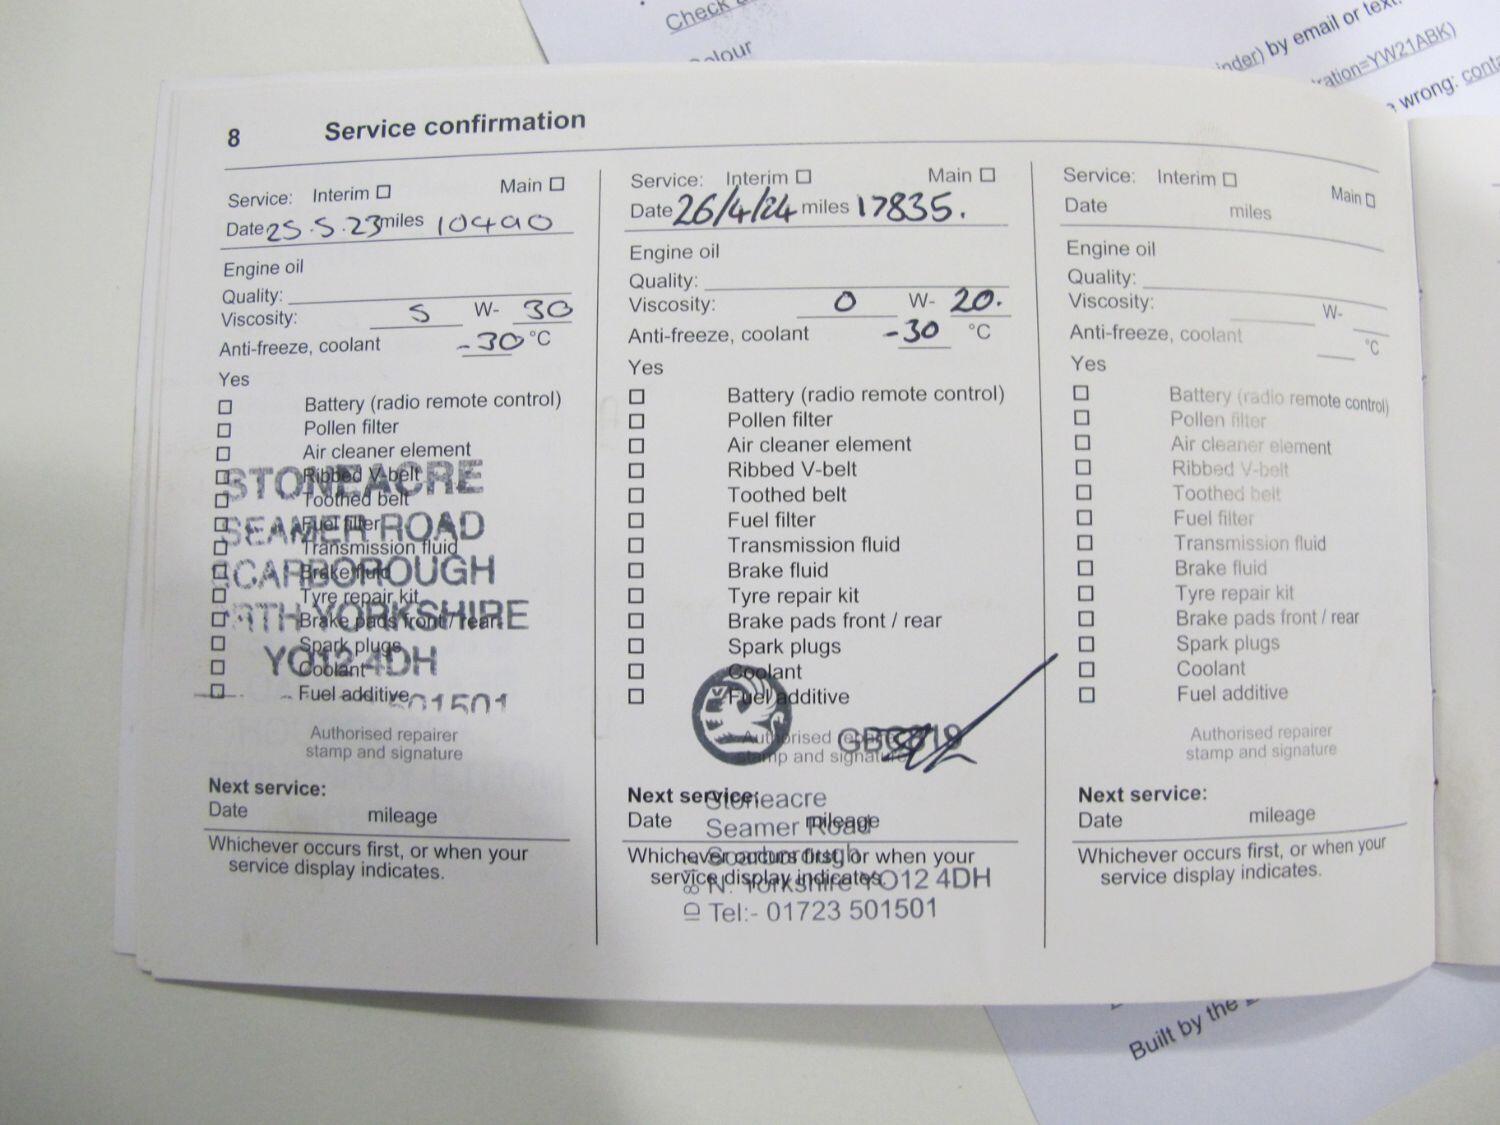 Check
olour
inder) by email or text.
ration=YW21ABK)
wrong: conta
8 Service confirmation
Service: Interim Main
Date 25.5.23 miles 10490
Engine oil
Quality:
Viscosity: 5 W- 30
Anti-freeze, coolant -30 °C
Yes
Battery (radio remote control)
Pollen filter
Air cleaner element
Ribbed V-belt
Toothed belt
Fuel filter
Transmission fluid
Brake fluid
Tyre repair kit
Brake pads front / rear
Spark plugs
Coolant
Fuel additive
STONEACRE
SEAMER ROAD
SCARBOROUGH
RTH YORKSHIRE
YO12 4DH
501501
Authorised repairer
stamp and signature
Next service:
Date mileage
Whichever occurs first, or when your
service display indicates.
Service: Interim Main
Date 26/4/24 miles 17835.
Engine oil
Quality:
Viscosity: 0 W- 20.
Anti-freeze, coolant -30 °C
Yes
Battery (radio remote control)
Pollen filter
Air cleaner element
Ribbed V-belt
Toothed belt
Fuel filter
Transmission fluid
Brake fluid
Tyre repair kit
Brake pads front / rear
Spark plugs
Coolant
Fuel additive
Authorised repairer
stamp and signature
Next service:
Date mileage
Whichever occurs first, or when your
service display indicates.
Stoneacre
Seamer Road
Scarborough
N. Yorkshire YO12 4DH
Tel:- 01723 501501
Service: Interim Main
Date miles
Engine oil
Quality:
Viscosity: W-
Anti-freeze, coolant °C
Yes
Battery (radio remote control)
Pollen filter
Air cleaner element
Ribbed V-belt
Toothed belt
Fuel filter
Transmission fluid
Brake fluid
Tyre repair kit
Brake pads front / rear
Spark plugs
Coolant
Fuel additive
Authorised repairer
stamp and signature
Next service:
Date mileage
Whichever occurs first, or when your
service display indicates.
Built by the